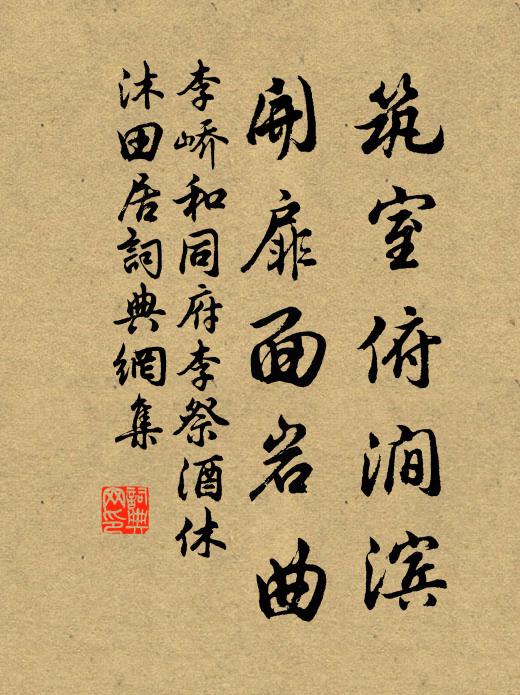 筑室俯涧滨
開扉面岩曲
李嶠和同府李祭酒休
沐田居詞典網集
詞典網印